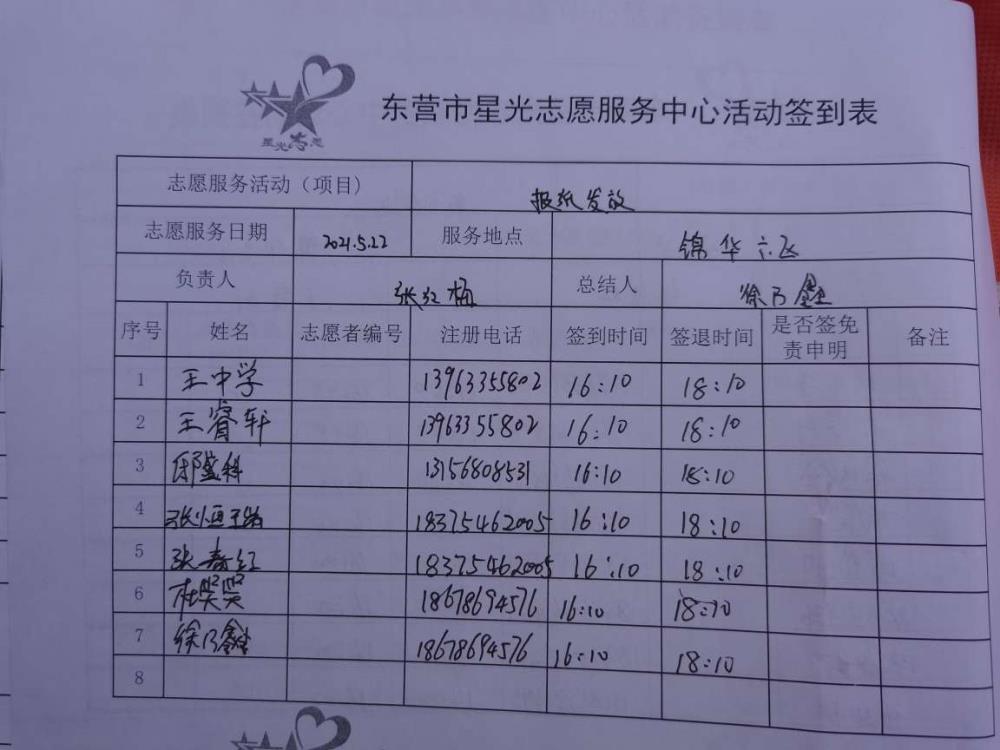 星光志愿
东营市星光志愿服务中心活动签到表
志愿服务活动（项目） 报纸发放
志愿服务日期 2021.5.22 服务地点 锦华六区
负责人 张红梅 总结人 徐乃鑫
序号 姓名 志愿者编号 注册电话 签到时间 签退时间 是否签免责申明 备注
1 王中学 13963355802 16:10 18:10
2 王睿轩 13963355802 16:10 18:10
3 邵盛科 13156808531 16:10 18:10
4 18375462005 16:10 18:10
5 张春红 18375462005 16:10 18:10
6 杜笑笑 18678694576 16:10 18:10
7 徐乃鑫 18678694576 16:10 18:10
8